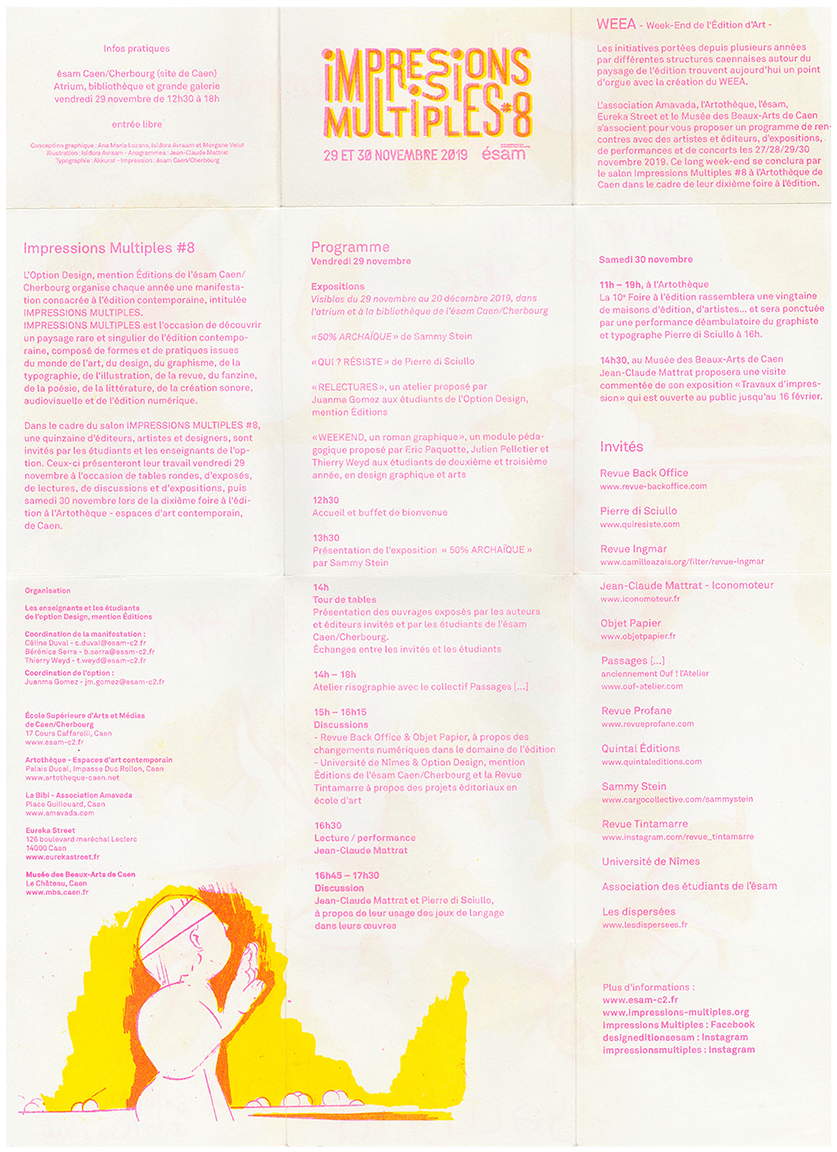 Infos pratiques
ésam Caen/Cherbourg (site de Caen)
Atrium, bibliothèque et grande galerie
vendredi 29 novembre de 12h30 à 18h
entrée libre
Conception graphique : Ana Maria Lozano, Isidora Avraam et Morgane Velut
Illustration : Isidora Avraam - Anagrammes : Jean-Claude Mattrat
Typographie : Akkurat - Impression : ésam Caen/Cherbourg
iMPRESSiONS
MULTiPLES#8
29 ET 30 NOVEMBRE 2019
ésam
WEEA - Week-End de l'Édition d'Art -
Les initiatives portées depuis plusieurs années
par différentes structures caennaises autour du
paysage de l'édition trouvent aujourd'hui un point
d'orgue avec la création du WEEA.
L'association Amavada, l'Artothèque, l'ésam,
Eureka Street et le Musée des Beaux-Arts de Caen
s'associent pour vous proposer un programme de ren-
contres avec des artistes et éditeurs, d'expositions,
de performances et de concerts les 27/28/29/30
novembre 2019. Ce long week-end se conclura par
le salon Impressions Multiples #8 à l'Artothèque de
Caen dans le cadre de leur dixième foire à l'édition.
Impressions Multiples #8
L'Option Design, mention Éditions de l'ésam Caen/
Cherbourg organise chaque année une manifesta-
tion consacrée à l'édition contemporaine, intitulée
IMPRESSIONS MULTIPLES.
IMPRESSIONS MULTIPLES est l'occasion de découvrir
un paysage rare et singulier de l'édition contempo-
raine, composé de formes et de pratiques issues
du monde de l'art, du design, du graphisme, de la
typographie, de l'illustration, de la revue, du fanzine,
de la poésie, de la littérature, de la création sonore,
audiovisuelle et de l'édition numérique.
Dans le cadre du salon IMPRESSIONS MULTIPLES #8,
une quinzaine d'éditeurs, artistes et designers, sont
invités par les étudiants et les enseignants de l'op-
tion. Ceux-ci présenteront leur travail vendredi 29
novembre à l'occasion de tables rondes, d'exposés,
de lectures, de discussions et d'expositions, puis
samedi 30 novembre lors de la dixième foire à l'édi-
tion à l'Artothèque - espaces d'art contemporain,
de Caen.
Organisation
Les enseignants et les étudiants
de l'option Design, mention Éditions
Coordination de la manifestation :
Céline Duval - c.duval@esam-c2.fr
Bérénice Serra - b.serra@esam-c2.fr
Thierry Weyd - t.weyd@esam-c2.fr
Coordination de l'option :
Juanma Gomez - jm.gomez@esam-c2.fr
École Supérieure d'Arts et Médias
de Caen/Cherbourg
17 Cours Caffarelli, Caen
www.esam-c2.fr
Artothèque - Espaces d'art contemporain
Palais Ducal, Impasse Duc Rollon, Caen
www.artotheque-caen.net
La Bibi - Association Amavada
Place Guillouard, Caen
www.amavada.com
Eureka Street
126 boulevard maréchal Leclerc
14000 Caen
www.eurekastreet.fr
Musée des Beaux-Arts de Caen
Le Château, Caen
www.mba.caen.fr
Programme
Vendredi 29 novembre
Expositions
Visibles du 29 novembre au 20 décembre 2019, dans
l'atrium et à la bibliothèque de l'ésam Caen/Cherbourg
«50% ARCHAÏQUE» de Sammy Stein
«QUI ? RÉSISTE» de Pierre di Sciullo
«RELECTURES», un atelier proposé par
Juanma Gomez aux étudiants de l'Option Design,
mention Éditions
«WEEKEND, un roman graphique», un module péda-
gogique proposé par Eric Paquotte, Julien Pelletier et
Thierry Weyd aux étudiants de deuxième et troisième
année, en design graphique et arts
12h30
Accueil et buffet de bienvenue
13h30
Présentation de l'exposition « 50% ARCHAÏQUE »
par Sammy Stein
14h
Tour de tables
Présentation des ouvrages exposés par les auteurs
et éditeurs invités et par les étudiants de l'ésam
Caen/Cherbourg.
Échanges entre les invités et les étudiants
14h – 18h
Atelier risographie avec le collectif Passages [...]
15h – 16h15
Discussions
- Revue Back Office & Objet Papier, à propos des
changements numériques dans le domaine de l'édition
- Université de Nîmes & Option Design, mention
Éditions de l'ésam Caen/Cherbourg et la Revue
Tintamarre à propos des projets éditoriaux en
école d'art
16h30
Lecture / performance
Jean-Claude Mattrat
16h45 – 17h30
Discussion
Jean-Claude Mattrat et Pierre di Sciullo,
à propos de leur usage des jeux de langage
dans leurs œuvres
Samedi 30 novembre
11h – 19h, à l'Artothèque
La 10e Foire à l'édition rassemblera une vingtaine
de maisons d'édition, d'artistes... et sera ponctuée
par une performance déambulatoire du graphiste
et typographe Pierre di Sciullo à 16h.
14h30, au Musée des Beaux-Arts de Caen
Jean-Claude Mattrat proposera une visite
commentée de son exposition «Travaux d'impres-
sion» qui est ouverte au public jusqu'au 16 février.
Invités
Revue Back Office
www.revue-backoffice.com
Pierre di Sciullo
www.quiresiste.com
Revue Ingmar
www.camilleazais.org/filter/revue-ingmar
Jean-Claude Mattrat - Iconomoteur
www.iconomoteur.fr
Objet Papier
www.objetpapier.fr
Passages [...]
anciennement Ouf ! l'Atelier
www.ouf-atelier.com
Revue Profane
www.revueprofane.com
Quintal Éditions
www.quintaleditions.com
Sammy Stein
www.cargocollective.com/sammystein
Revue Tintamarre
www.instagram.com/revue_tintamarre
Université de Nîmes
Association des étudiants de l'ésam
Les dispersées
www.lesdispersees.fr
Plus d'informations :
www.esam-c2.fr
www.impressions-multiples.org
Impressions Multiples : Facebook
designeditionsesam : Instagram
impressionsmultiples : Instagram